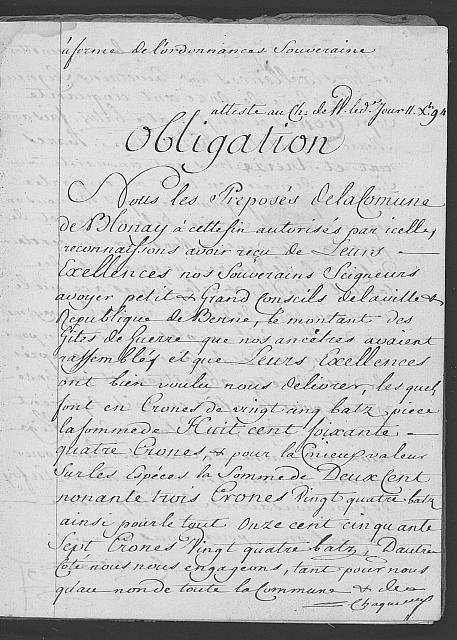 à forme de l'ordonnances Souveraine
atteste au Ch. de led.t Jour 11. Xbre 94
Obligation
Nous les Preposés de la Comune
de Blonay à cette fin autorisés par icelle,
reconnaissons avoir reçu de Leurs —
Exellences nos Souverains Seigneurs
avoyer petit & Grand Conseils de la ville &
République de Berne, le montant des
Gites de Guerre que nos ancêtres avaient
rassemblés, et que Leurs Exellences
ont bien voulu nous délivrer, lesquels
font en Crones de vingt cinq batz pièce
la somme de Huit cent soixante —
quatre Crones, & pour la mieux valeur
Sur les Espéces la Somme de Deux Cent
nonante trois Crones Vingt quatre batz
ainsi pour le tout Onze cent cinquante
Sept Crones Vingt quatre batz, D'autre
côté nous nous engageons, tant pour nous
qu'au nom de toute la Commune & de
— Chaque